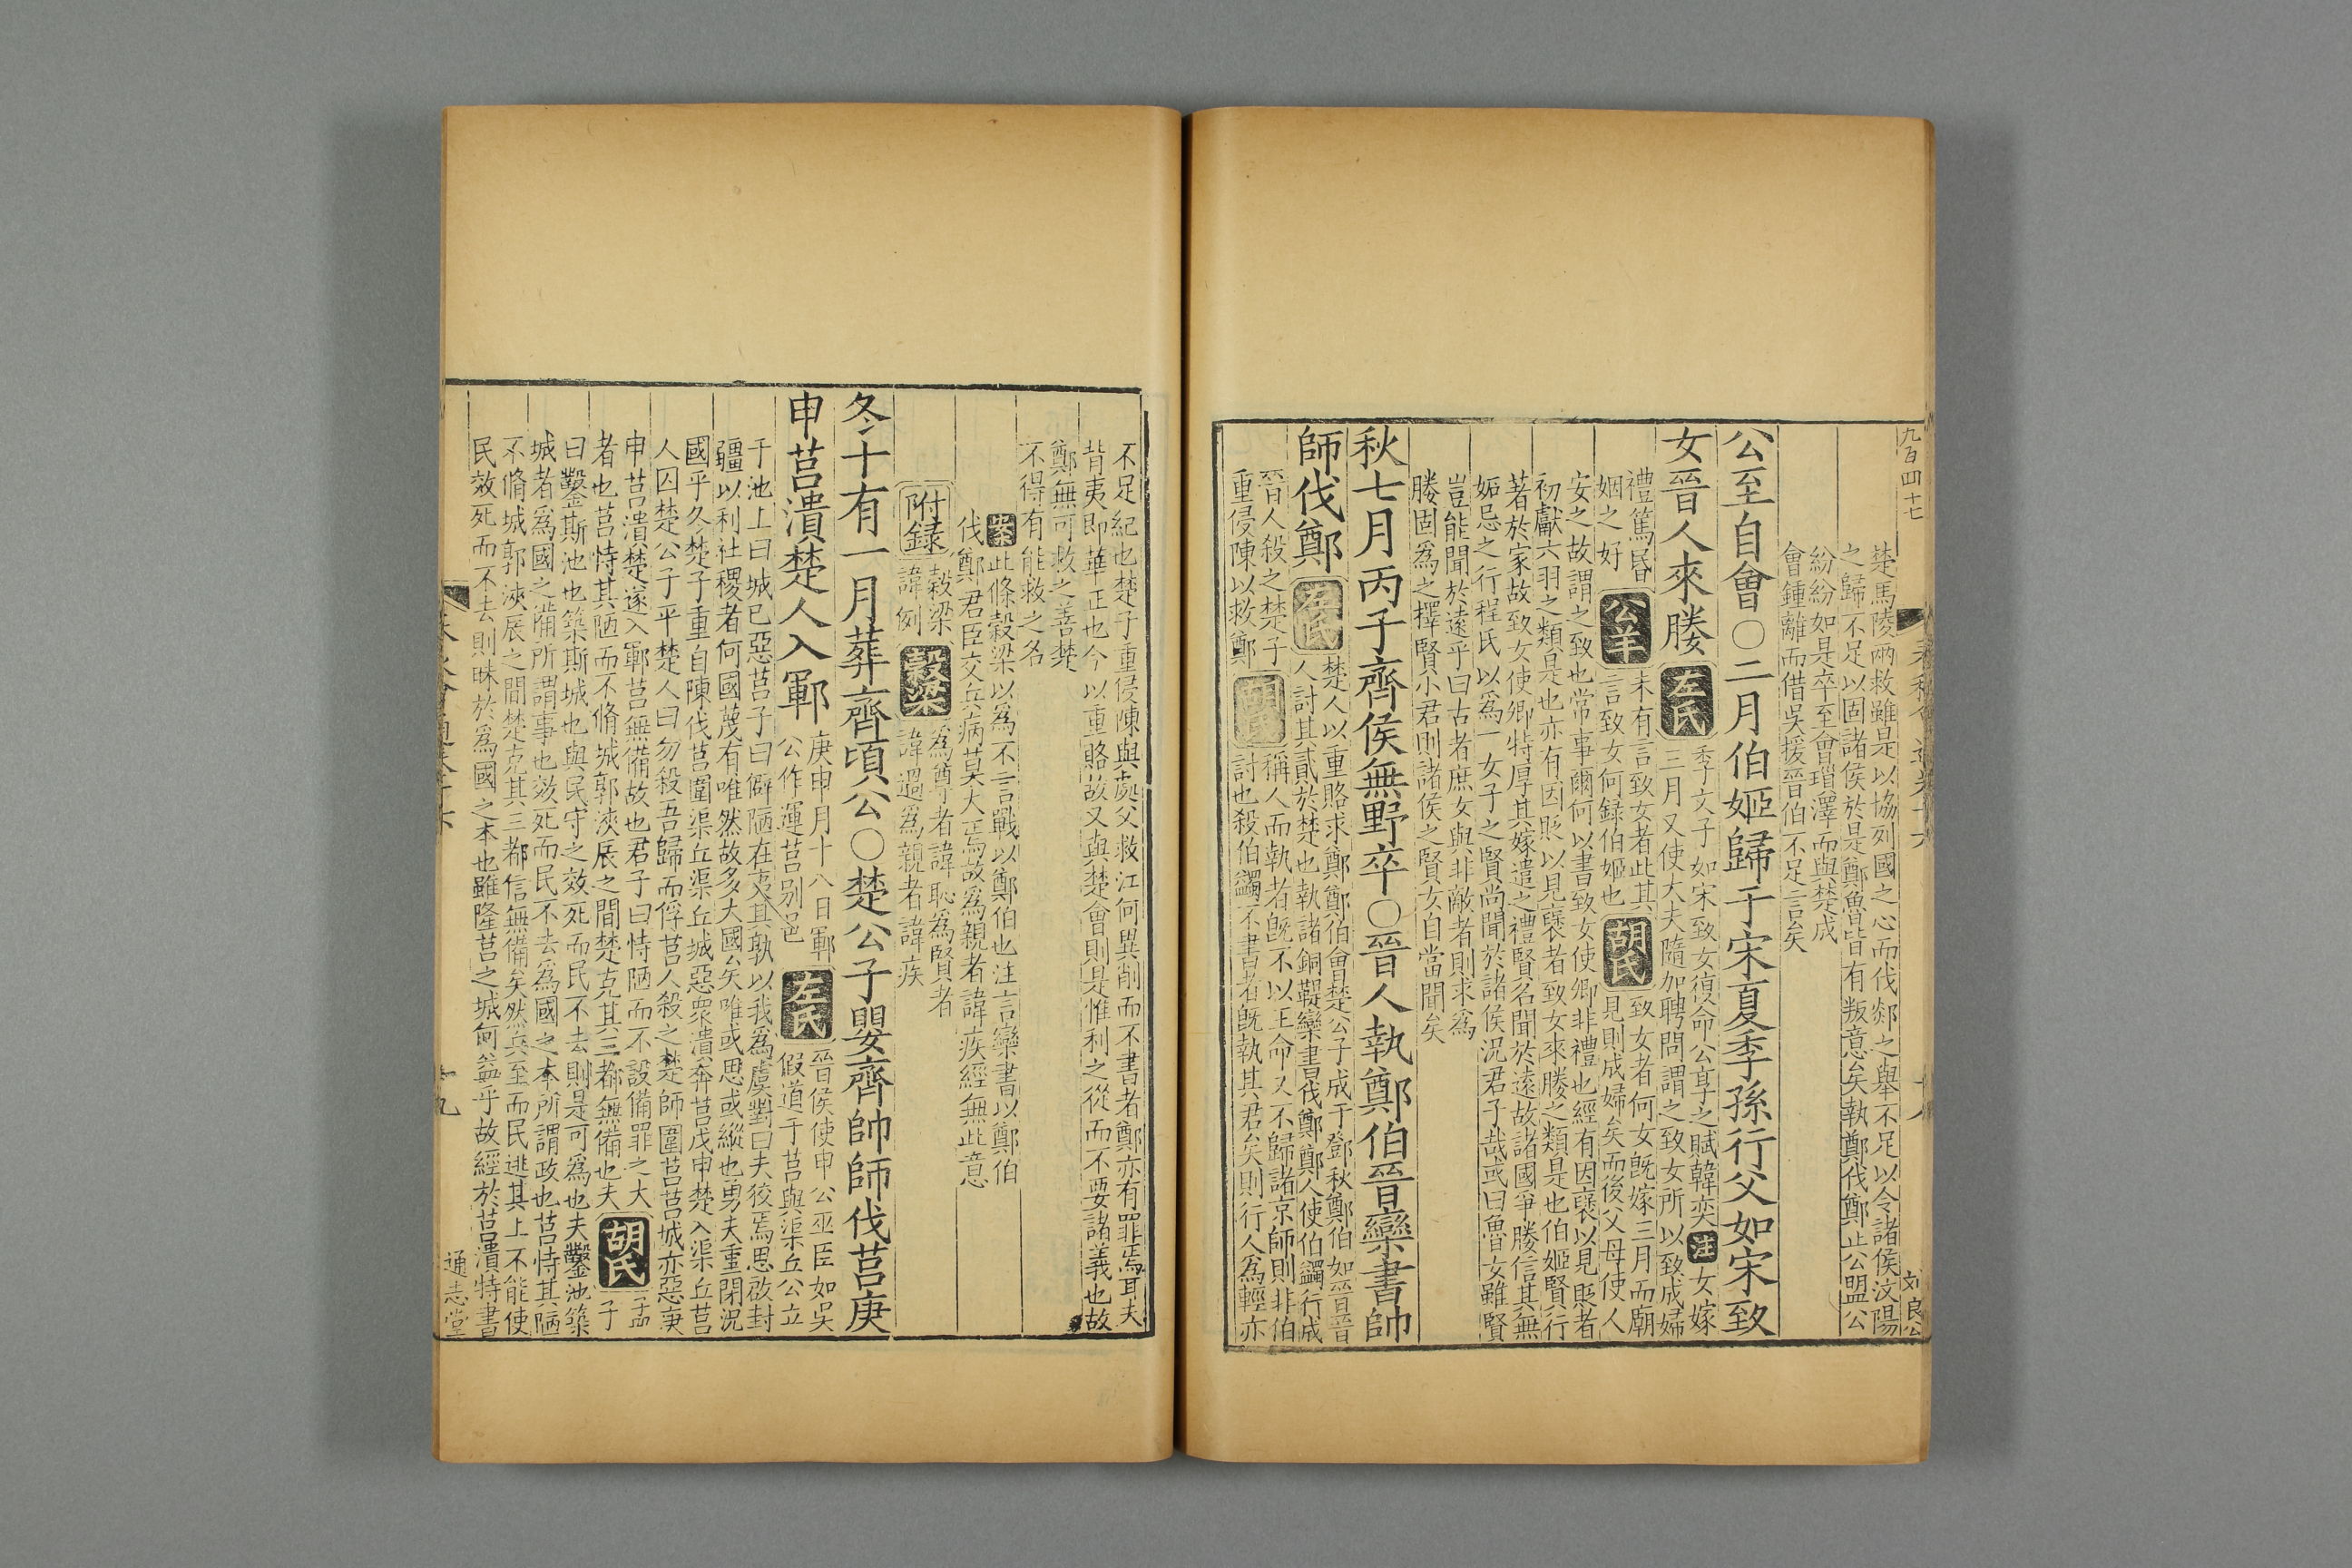 九百四十七
劉良公
楚馬陵兩救雖是以協列國之心而伐郯之舉不足以令諸侯汶陽
之歸不足以固諸侯於是鄭魯皆有叛意矣執鄭伐鄭止公盟公
紛紛如是卒至會瑣澤而與楚成
會鍾離而借吳援晉伯不足言矣
公至自會○二月伯姬歸于宋夏季孫行父如宋致
女晉人來媵
左氏
季文子如宋致女復命公享之賦韓奕注女嫁
三月又使大夫隨加聘問謂之致女所以致成婦
禮篤昬
姻之好
公羊
未有言致女者此其
言致女何録伯姬也
胡氏
致女者何女既嫁三月而廟
見則成婦矣而後父母使人
安之故謂之致也常事爾何以書致女使卿非禮也經有因褒以見貶者
初獻六羽之類是也亦有因貶以見褒者致女來媵之類是也伯姬賢行
著於家故致女使卿特厚其嫁遣之禮賢名聞於遠故諸國爭媵信其無
妬忌之行程氏以爲一女子之賢尚聞於諸侯況君子哉或曰魯女雖賢
豈能聞於遠乎曰古者庶女與非敵者則求爲
媵固爲之擇賢小君則諸侯之賢女自當聞矣
秋七月丙子齊侯無野卒○晉人執鄭伯晉欒書帥
師伐鄭
左氏
楚人以重賂求鄭鄭伯會楚公子成于鄧秋鄭伯如晉晉
人討其貳於楚也執諸銅鞮欒書伐鄭鄭人使伯蠲行成
晉人殺之楚子
重侵陳以救鄭
胡氏
稱人而執者既不以王命又不歸諸京師則非伯
討也殺伯蠲不書者既執其君矣則行人爲輕亦
不足紀也楚子重侵陳與處父救江何異削而不書者鄭亦有罪焉耳夫
背夷即華正也今以重賂故又與楚會則是惟利之從而不要諸義也故
鄭無可救之善楚
不得有能救之名
案此條穀梁以爲不言戰以鄭伯也注言欒書以鄭伯
伐鄭君臣交兵病莫大焉故爲親者諱疾經無此意
附録
穀梁
諱例
穀梁
爲尊者諱恥爲賢者
諱過爲親者諱疾
冬十有一月葬齊頃公○楚公子嬰齊帥師伐莒庚
申莒潰楚人入鄆
庚申月十八日鄆
公作運莒别邑
左氏
晉侯使申公巫臣如吳
假道于莒與渠丘公立
于池上曰城已惡莒子曰僻陋在夷其孰以我爲虞對曰夫狡焉思啟封
疆以利社稷者何國蔑有唯然故多大國矣唯或思或縱也勇夫重閉況
國乎久楚子重自陳伐莒圍渠丘渠丘城惡衆潰奔莒戊申楚入渠丘莒
人囚楚公子平楚人曰勿殺吾歸而俘莒人殺之楚師圍莒莒城亦惡庚
申莒潰楚遂入鄆莒無備故也君子曰恃陋而不設備罪之大
者也莒恃其陋而不脩城郭浹辰之間楚克其三都無備也夫
胡氏
孟
子
曰鑿斯池也築斯城也與民守之效死而民不去則是可爲也夫鑿池築
城者爲國之備所謂事也效死而民不去爲國之本所謂政也莒恃其陋
不脩城郭浹辰之間楚克其三都信無備矣然兵至而民逃其上不能使
民效死而不去則昧於爲國之本也雖隆莒之城何益乎故經於莒潰特書
通志堂